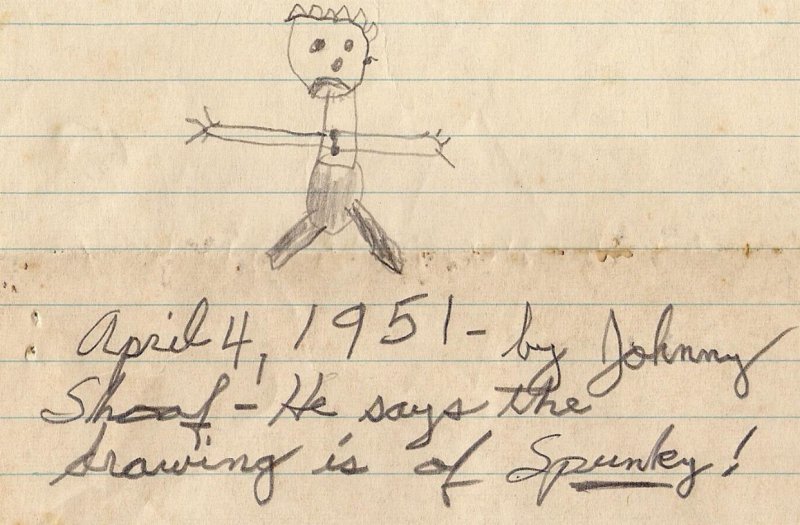 April 4, 1951 - by Johnny
Shoaf - He says the
drawing is of Spunky!